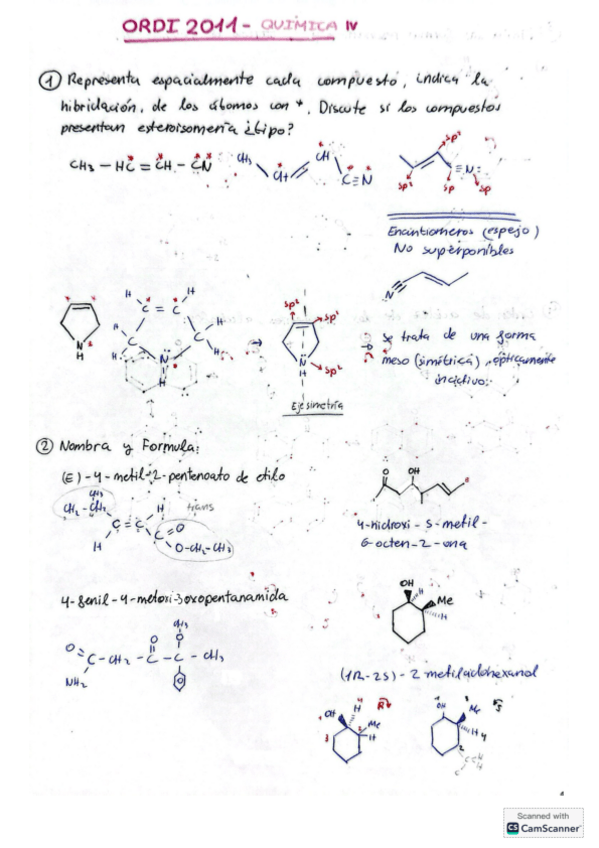 ORDI 2011 - QUÍMICA IV
① Representa espacialmente cada compuesto, indica la
hibridación, de los átomos con *. Discute si los compuestos
presentan esteroisomería ¿tipo?
CH₃ - HC = CH - CN
CH₃
CH
CH
C≡N
sp²
sp²
sp
sp
≡N:
Enantiomeros (espejo)
No superponibles
N
H
H
C = C
H
H
C
C
H
H
N
H
N
H
→
sp²
sp²
sp²
N
H
Eje simetría
→ se trata de una forma
meso (simétrica), ópticamente
inactivo.
② Nombra y Formula:
(E)-4-metil-2-pentenoato de etilo
CH₃
trans
H
C = C
H
C
O
O-CH₂-CH₃
O
OH
4-hidroxi-5-metil-
6-octen-2-ona
4-fenil-4-metoxi-3oxopentanamida
CH₃
O
O
O
C - CH₂ - C - C - CH₃
NH₂
OH
H
Me
H
(1R-2S)-2-metilciclohexanol
OH
H
R
Me
H
3
OH
Me
S
H
4
2
Scanned with
CS CamScanner